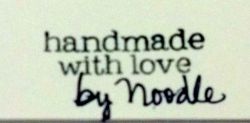 handmade
with love
by Noodle